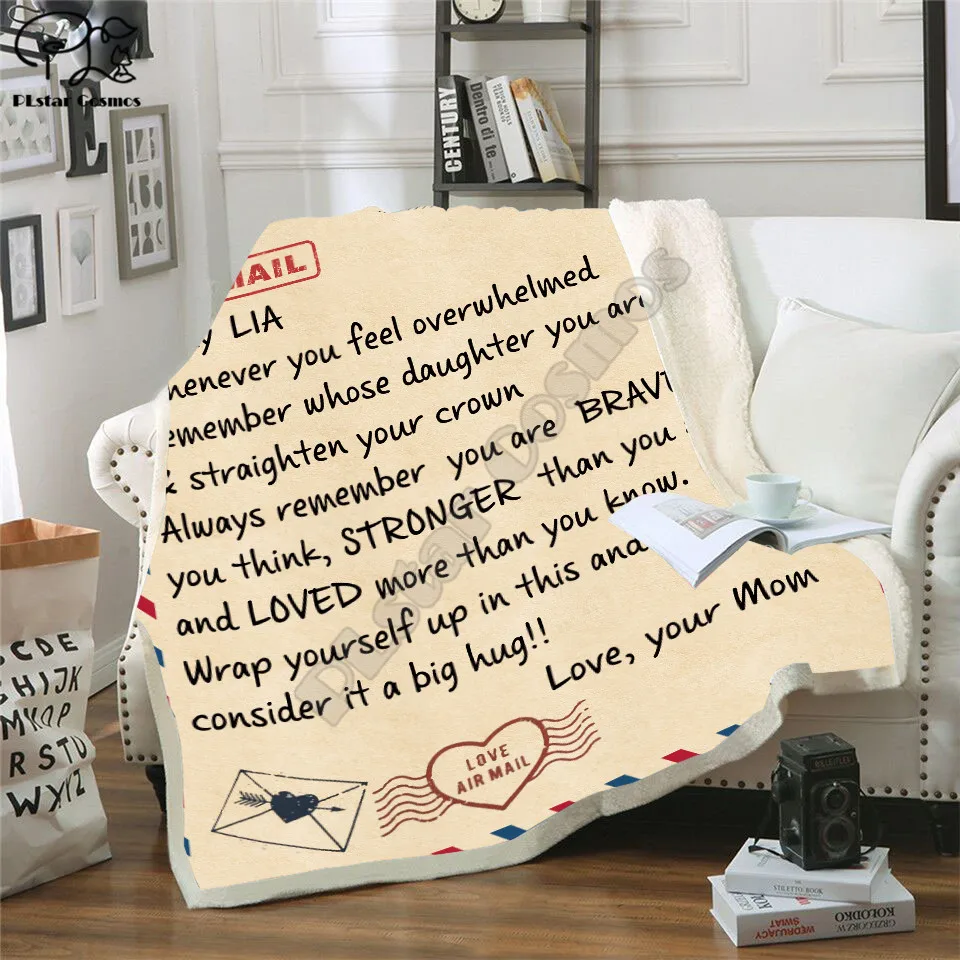 PLstar Cosmos
CENTURY
Dentro di te
DESIGN HOTELS
YEAR BOOK
MAIL
y LIA
henever you feel overwhelmed
emember whose daughter you are
& straighten your crown
Always remember you are BRAV
you think, STRONGER than you
and LOVED more than you know.
Wrap yourself up in this and
consider it a big hug!!
Love, your Mom
LOVE
AIR MAIL
PLstar Cosmos
E
C D E
G H I J K
M N O P
R S T U
W X Y Z
STILETTO: BOOK
WĘDRUJĄCY
ŚWIAT
GRZEGORZ W
KOŁODKO